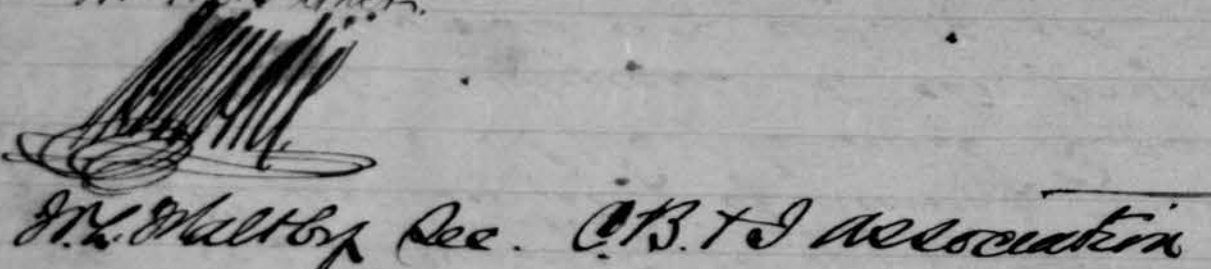 W. L. Maltby Sec. C. B. & I association